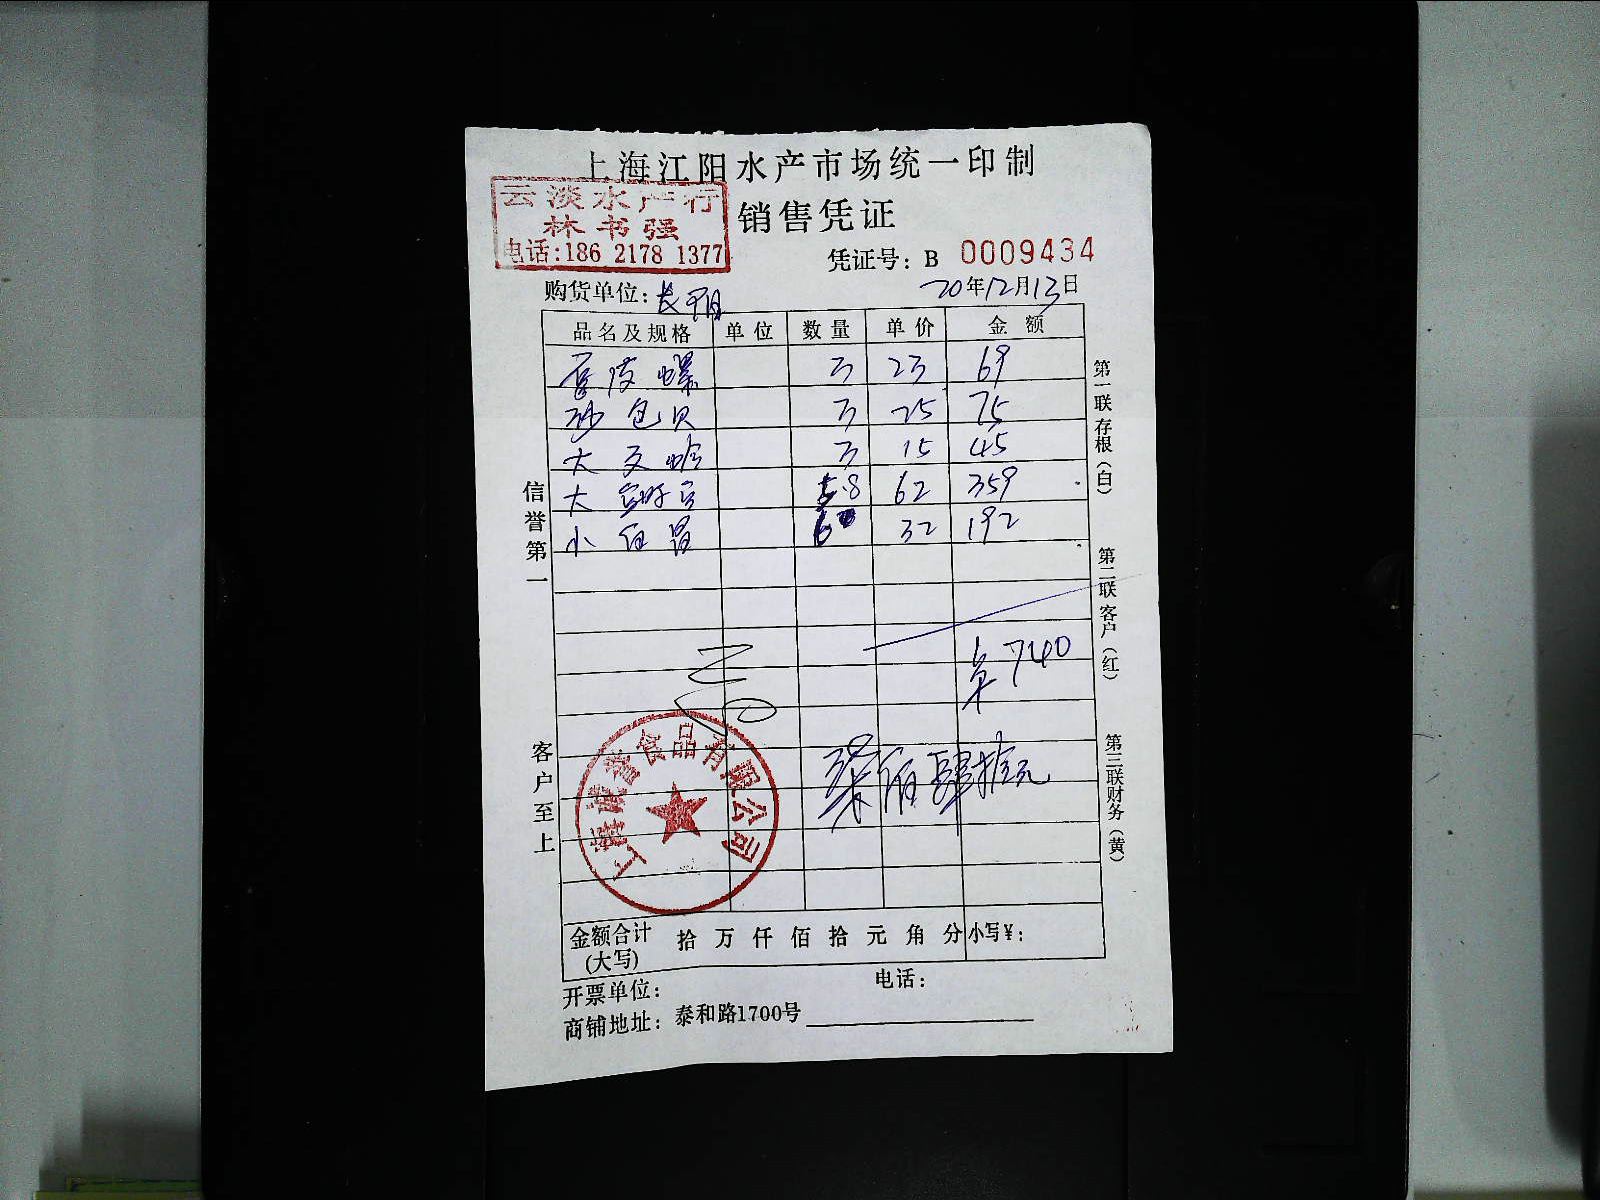 上海江阳水产市场统一印制
云淡水产行
林书强
电话:186 2178 1377
销售凭证
凭证号: B 0009434
购货单位: 长阳
20年12月13日
品名及规格 单位 数量 单价 金额
3 23 69
砂包贝 3 25 75
大文蛤 3 15 45
大 5.8 62 359
小 6 32 192
740
柒佰肆拾元
上海诚誉食品有限公司
金额合计(大写) 拾 万 仟 佰 拾 元 角 分 小写¥:
开票单位: 电话:
商铺地址: 泰和路1700号
信誉第一
客户至上
第一联存根(白)
第二联客户(红)
第三联财务(黄)